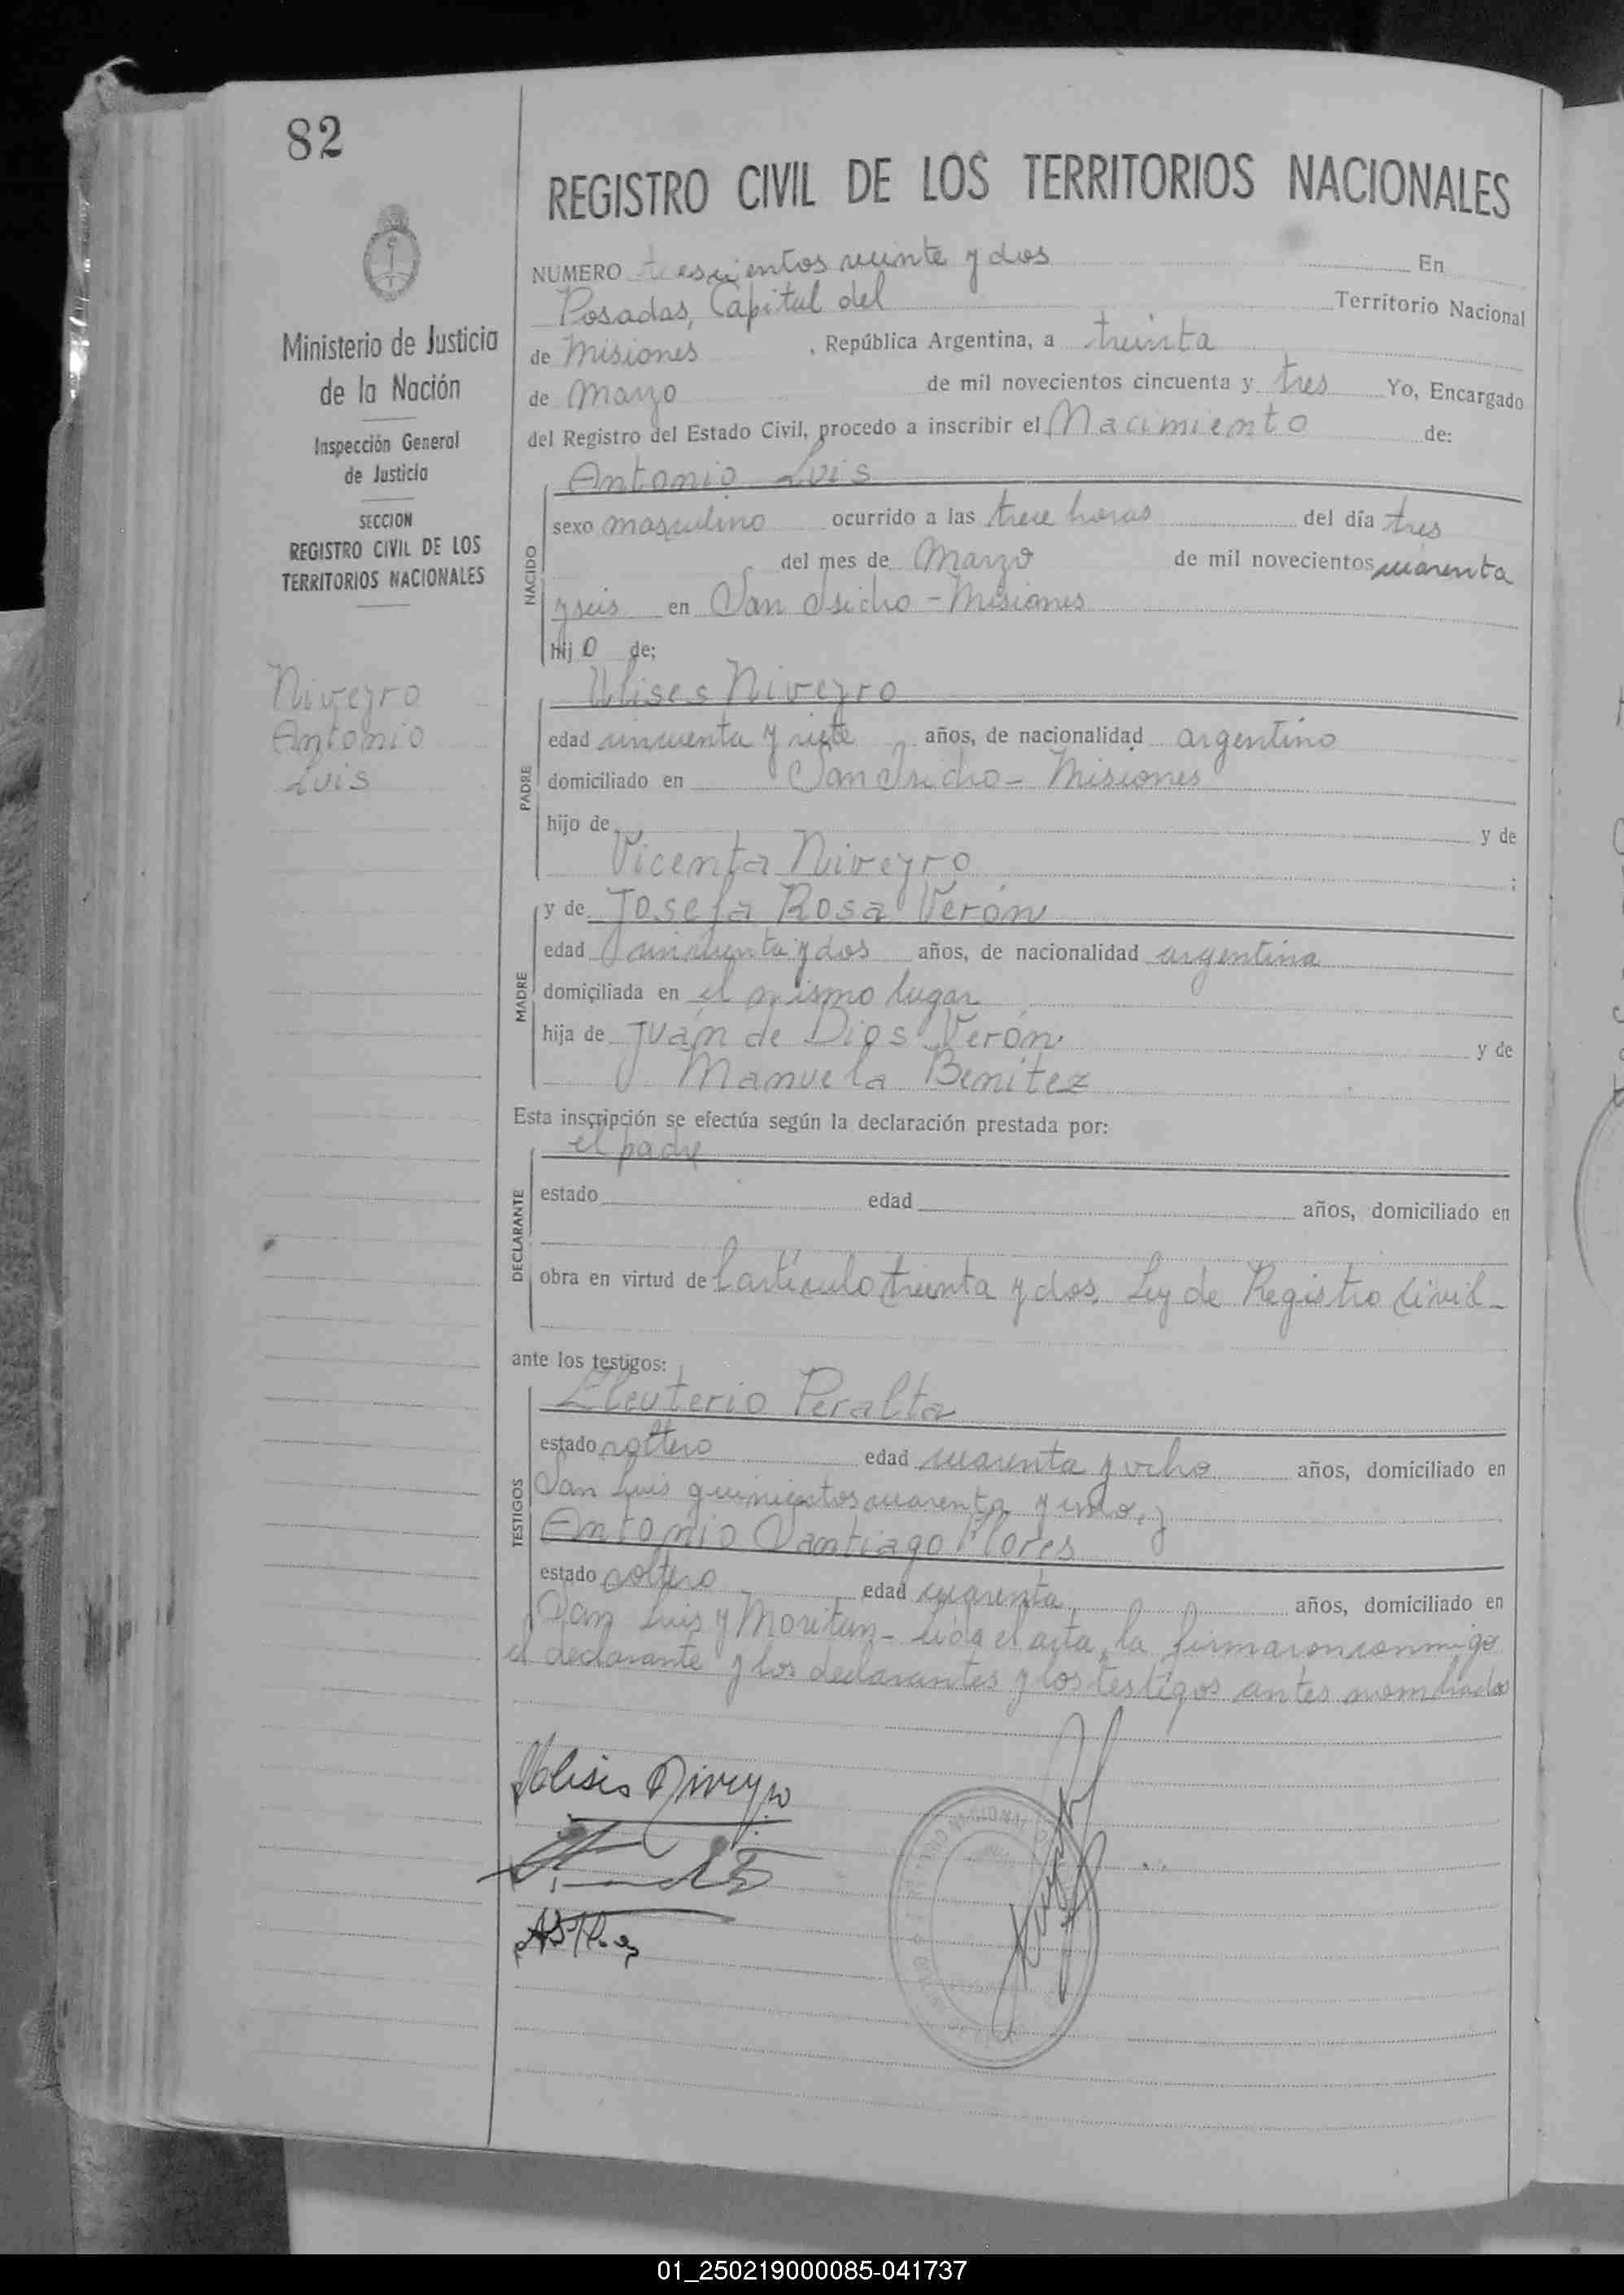 82
REGISTRO CIVIL DE LOS TERRITORIOS NACIONALES
Ministerio de Justicia
de la Nación
Inspección General
de Justicia
SECCION
REGISTRO CIVIL DE LOS
TERRITORIOS NACIONALES
Niveyro
Antonio
Luis
NUMERO trescientos veinte y dos En
Posadas, Capital del Territorio Nacional
de Misiones , República Argentina, a treinta
de Marzo de mil novecientos cincuenta y tres Yo, Encargado
del Registro del Estado Civil, procedo a inscribir el Nacimiento de:
NACIDO
Antonio Luis
sexo masculino ocurrido a las trece horas del día tres
del mes de Marzo de mil novecientos cuarenta
y seis en San Isidro - Misiones
hijo de:
PADRE
Ulises Niveyro
edad cincuenta y siete años, de nacionalidad argentino
domiciliado en San Isidro - Misiones
hijo de y de
Vicenta Niveyro ;
MADRE
y de Josefa Rosa Verón
edad cincuenta y dos años, de nacionalidad argentina
domiciliada en el mismo lugar
hija de Juán de Dios Verón y de
Manuela Benitez
Esta inscripción se efectúa según la declaración prestada por:
DECLARANTE
el padre
estado edad años, domiciliado en
obra en virtud del artículo treinta y dos. Ley de Registro Civil-
ante los testigos:
TESTIGOS
Eleuterio Peralta
estado soltero edad cuarenta y ocho años, domiciliado en
San Luis quinientos cuarenta y uno, y
Antonio Santiago Flores
estado soltero edad cuarenta años, domiciliado en
San Luis y Moritan- Lida el acta, la firmaron conmigo
el declarante y los declarantes y los testigos antes nombrados
Ulises Niveyro
01_250219000085-041737